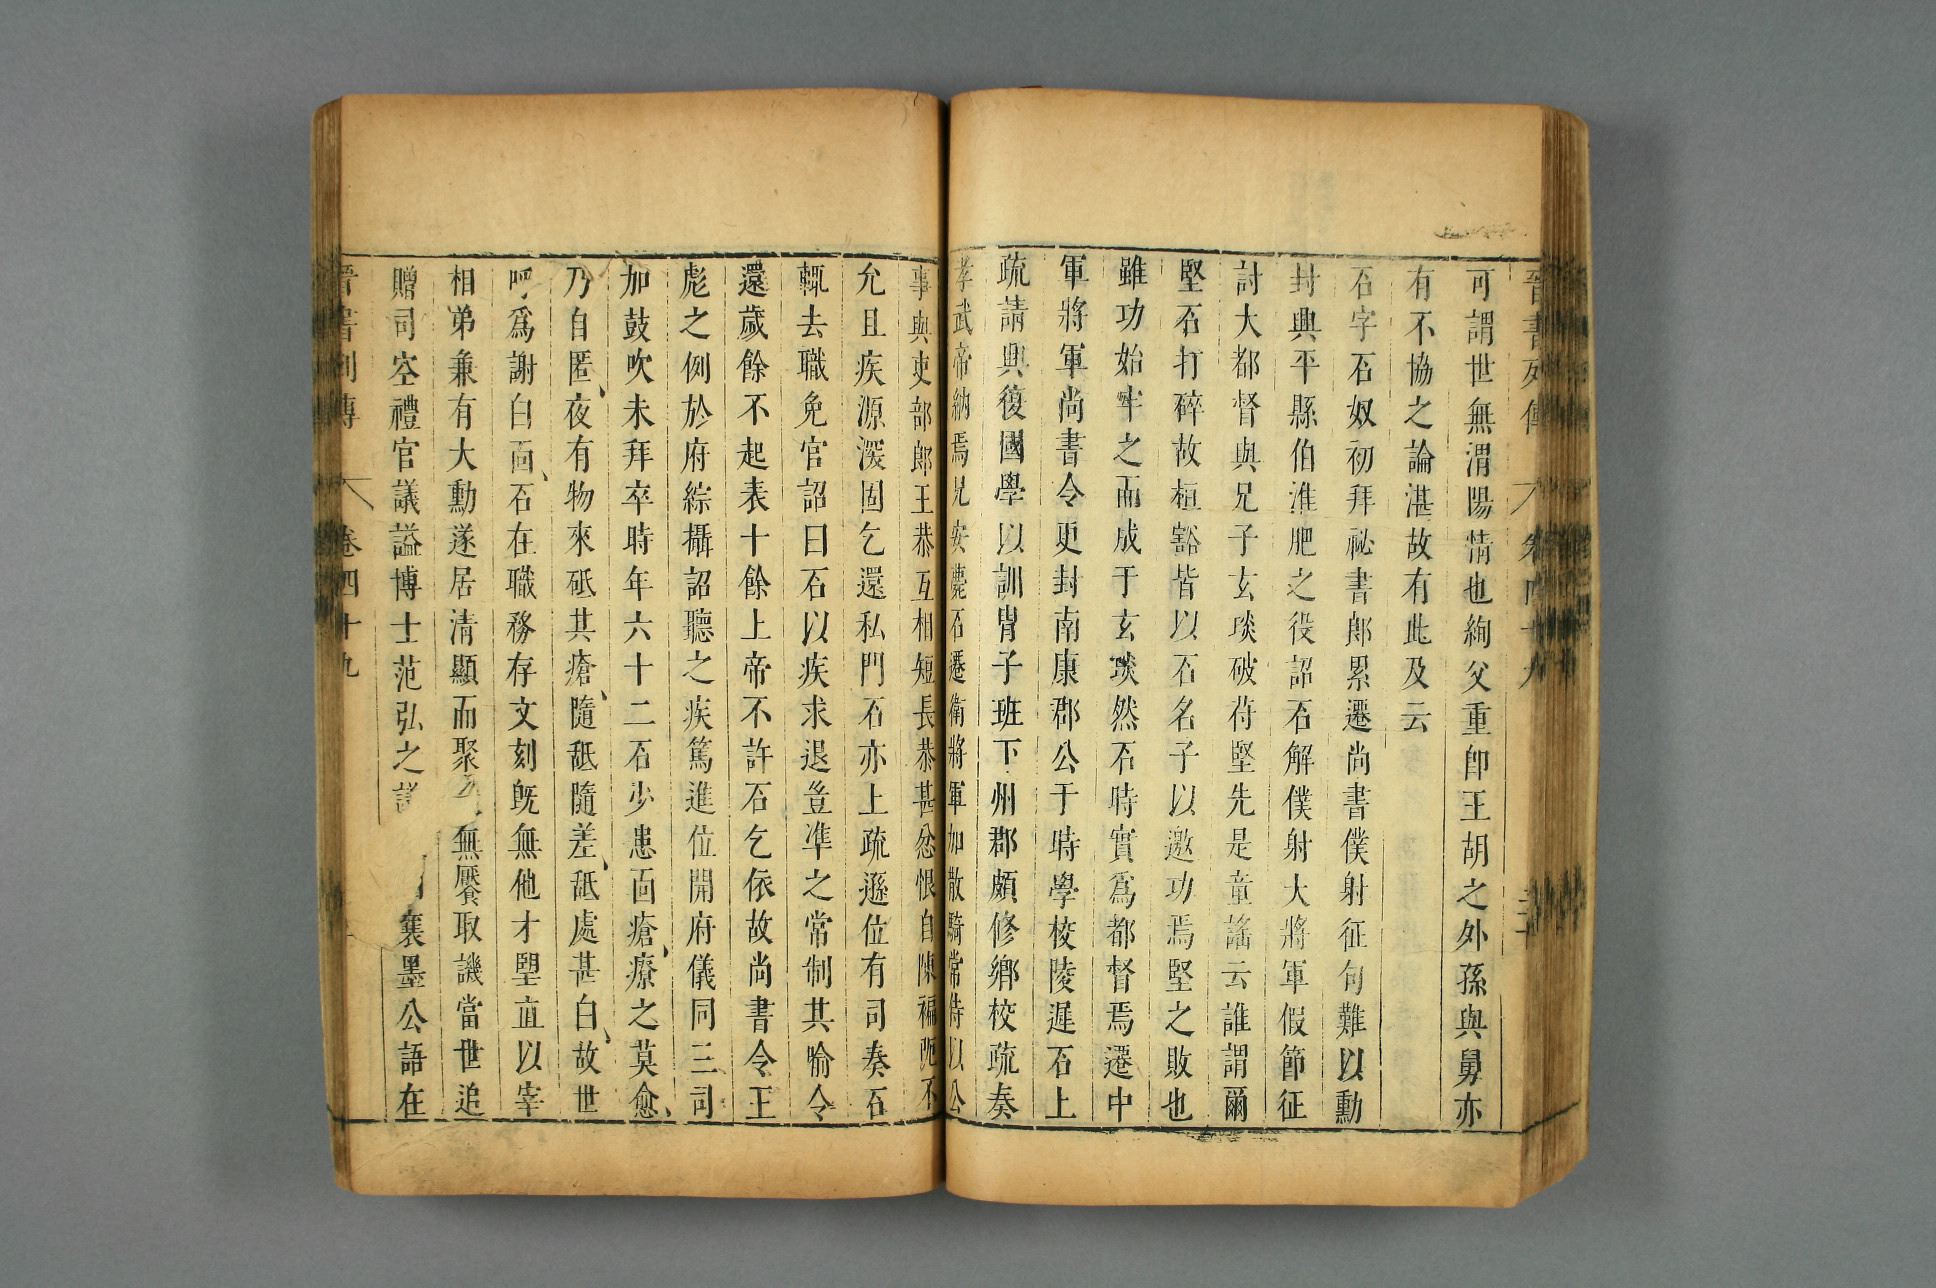 晉書列傳 卷四十九
可謂世無渭陽情也絢父重卽王胡之外孫與舅亦
有不協之論湛故有此及云
石字石奴初拜祕書郎累遷尚書僕射征句難以勳
封興平縣伯淮肥之役詔石解僕射以將軍假節征
討大都督與兄子玄琰破苻堅先是童謠云誰謂爾
堅石打碎故桓豁皆以石名子以邀功焉堅之敗也
雖功始牢之而成于玄琰然石時實爲都督焉遷中
軍將軍尚書令更封南康郡公于時學校陵遲石上
疏請興復國學以訓胄子班下州郡頗修鄉校疏奏
孝武帝納焉兄安薨石遷衞將軍加散騎常侍以公
事與吏部郎王恭互相短長恭甚忿恨自陳褊阨不
允且疾源深固乞還私門石亦上疏遜位有司奏石
輒去職免官詔曰石以疾求退豈準之常制其喻令
還歲餘不起表十餘上帝不許石乞依故尚書令王
彪之例於府綜攝詔聽之疾篤進位開府儀同三司
加鼓吹未拜卒時年六十二石少患面瘡療之莫愈
乃自匿夜有物來砥其瘡隨舐隨差舐處甚白故世
呼爲謝白面石在職務存文刻旣無他才望直以宰
相弟兼有大勳遂居清顯而聚無饜取譏當世追
贈司空禮官議謚博士范弘之襄墨公語在
晉書列傳 卷四十九